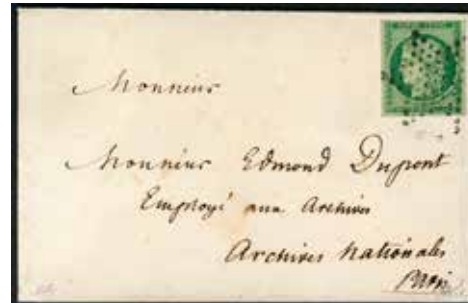 Monsieur
Monsieur Edmond Dupont
Employé aux Archives
Archives Nationales
Paris